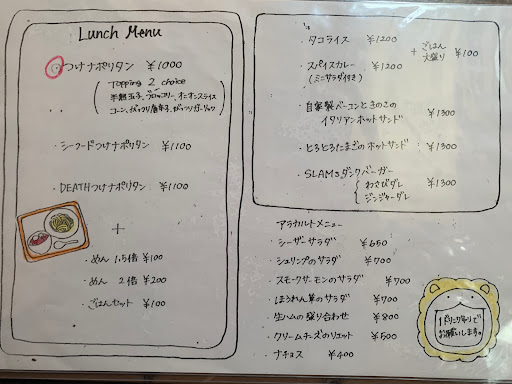 Lunch Menu
つけナポリタン ¥1000
Topping 2 choice
半熟玉子、ブロッコリー、オニオンスライス
コーン、がっつり唐辛子、がっつりガーリック
・シーフードつけナポリタン ¥1100
・DEATHつけナポリタン ¥1100
+
・めん 1.5倍 ¥100
・めん 2倍 ¥200
・ごはんセット ¥100
・タコライス ¥1200
・スパイスカレー ¥1200
(ミニサラダ付き)
+ ごはん大盛り ¥100
・自家製ベーコンときのこの
イタリアンホットサンド ¥1300
・とろとろたまごのホットサンド ¥1300
・SLAMダンクバーガー
わさびダレ
ジンジャーダレ
¥1300
アラカルトメニュー
・シーザーサラダ ¥650
・シュリンプのサラダ ¥700
・スモークサーモンのサラダ ¥700
・ほうれん草のサラダ ¥700
・生ハムの盛り合わせ ¥800
・クリームチーズのリエット ¥500
・ナチョス ¥400
お願いします。